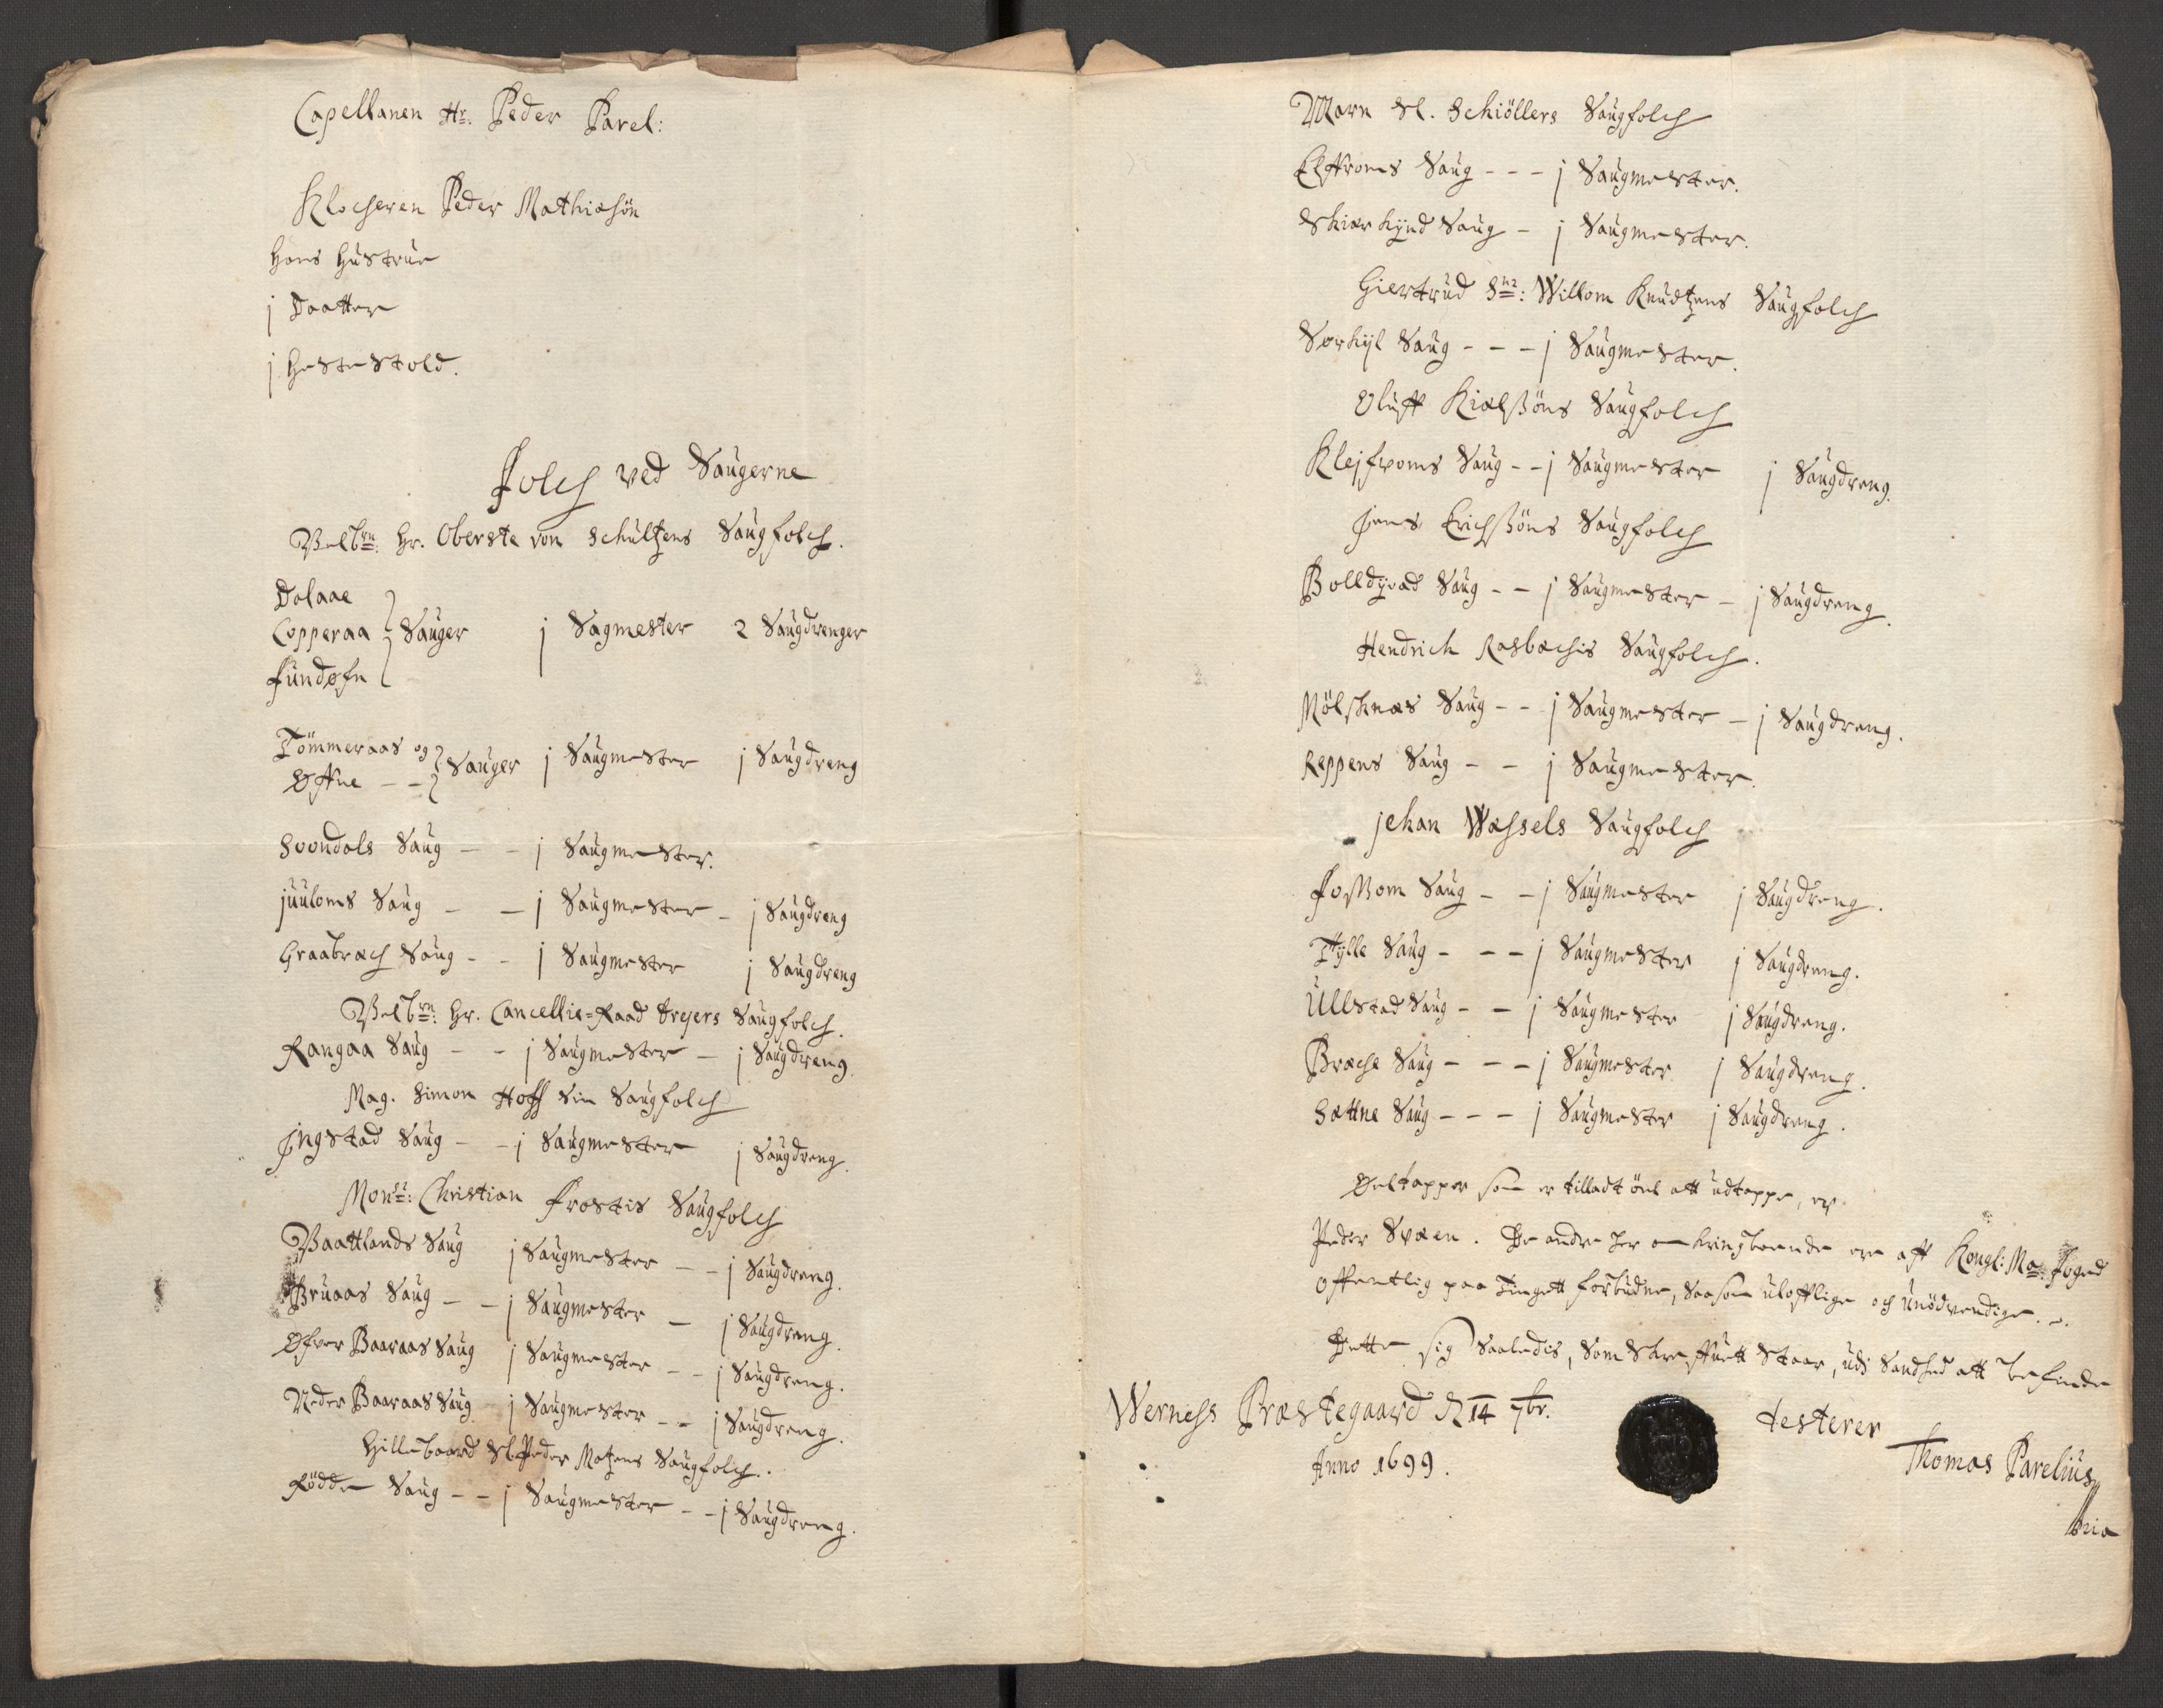 Capellanen Hr. Peder Parel:
Klocheren Peder Mathiæsön
Hans Hustrue
j Daatter
j Hestestold.
Folch ved Saugerne
Velbrn: Hr. Oberste von Schultzens Saugfolch.
Dalaae
Copperaa Sauger j Sagmester 2 Saugdrenger
Fundøfn
Tömmeraas og
Øffne - - Sauger j Saugmester j Saugdreng
Svondals Saug - - j Saugmester.
Juuloms Saug - - j Saugmester - j Saugdreng
Graabræch Saug - - j Saugmester j Saugdreng
Velbrn: Hr. Cancellie=Raad Dreyers Saugfolch.
Rangaa Saug - - j Saugmester - j Saugdreng.
Mag. Simon Hoff sin Saugfolch
Jngstad Saug - - j Saugmester j Saugdreng.
Monsr: Christian Frostis Saugfolch
Vaattlands Saug j Saugmester - - j Saugdreng.
Bruaas Saug - - j Saugmester - j Saugdreng.
Øfver Baaraas Saug j Saugmester - - j Saugdreng.
Neder Baaraas Saug - j Saugmester - - j Saugdreng.
Hillebaard Sl. Peder Matzens Saugfolch.
Rödde Saug - - j Saugmester - - j Saugdreng.
Marn Sl. Schiöllers Saugfolch
Elftroms Saug - - - j Saugmester.
Skier hynd Saug - j Saugmester.
Giertrud Willom Knudtzens Saugfolch
Sørkyl Saug - - - j Saugmester.
Oluff Kiælssöns Saugfolch
Klejfvoms Saug - - j Saugmester j Saugdreng.
Jens Erichssöns Saugfolch
Bolldyvad Saug - - j Saugmester - j Saugdreng.
Hendrich Rasbæchis Saugfolch.
Mölschnæs Saug - - j Saugmester - j Saugdreng.
Reppens Saug - - j Saugmester.
Jehan Wæssels Saugfolch
Fossom Saug - - j Saugmester j Saugdreng.
Tylle Saug - - - j Saugmester j Saugdreng.
Ullstad Saug - - j Saugmester j Saugdreng.
Bræche Saug - - - j Saugmester j Saugdreng.
Sættne Saug - - - j Saugmester j Saugdreng.
Øeltapper som er tilladt öel att udtappe, er
Peder Svæen. De andre her omkringboende ere aff Kongl: Ma: Foged
offentlig paa Tingett forbudne, saasom ulofflige och unödvendige.
Dette sig saaledis, som skreffuett staar, udi sandhed att befinde
Werness Præstegaard d 14 7br. testerer
Anno 1699. Thomas Parelius
mia